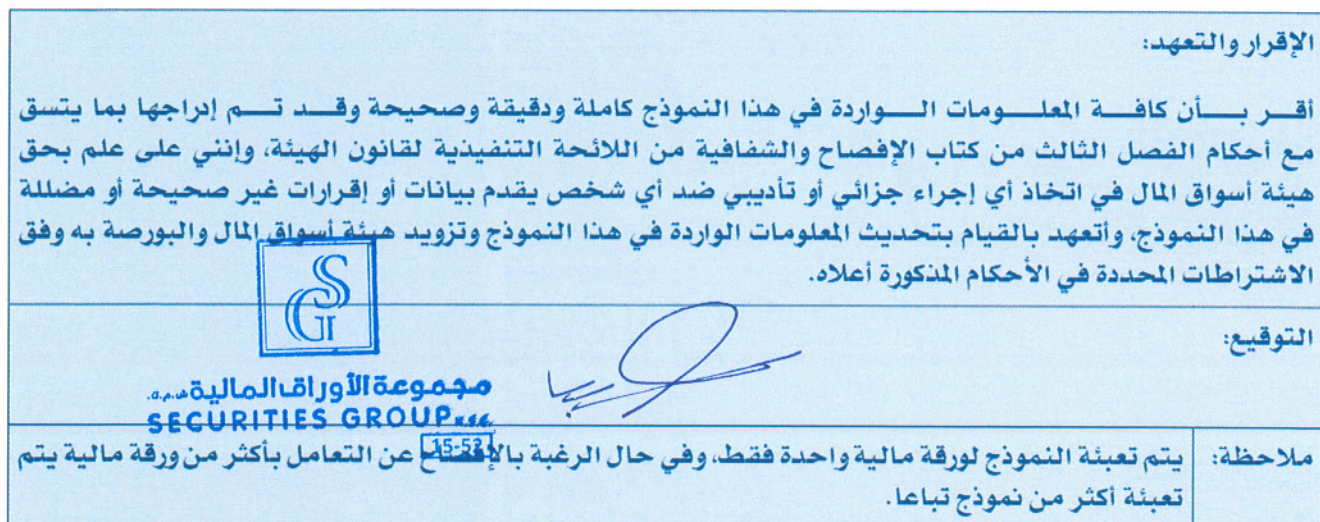 الإقرار والتعهد:
أقــر بــأن كافــة المعلــومات الــواردة في هذا النموذج كاملة ودقيقة وصحيحة وقــد تــم إدراجها بما يتسق
مع أحكام الفصل الثالث من كتاب الإفصاح والشفافية من اللائحة التنفيذية لقانون الهيئة، وإنني على علم بحق
هيئة أسواق المال في اتخاذ أي إجراء جزائي أو تأديبي ضد أي شخص يقدم بيانات أو إقرارات غير صحيحة أو مضللة
في هذا النموذج، وأتعهد بالقيام بتحديث المعلومات الواردة في هذا النموذج وتزويد هيئة أسواق المال والبورصة به وفق
الاشتراطات المحددة في الأحكام المذكورة أعلاه.
SGI
التوقيع:
مجموعة الأوراق المالية ش.م.ك.
SECURITIES GROUP K.S.C.
15-52
ملاحظة: يتم تعبئة النموذج لورقة مالية واحدة فقط، وفي حال الرغبة بالإفصاح عن التعامل بأكثر من ورقة مالية يتم
تعبئة أكثر من نموذج تباعا.